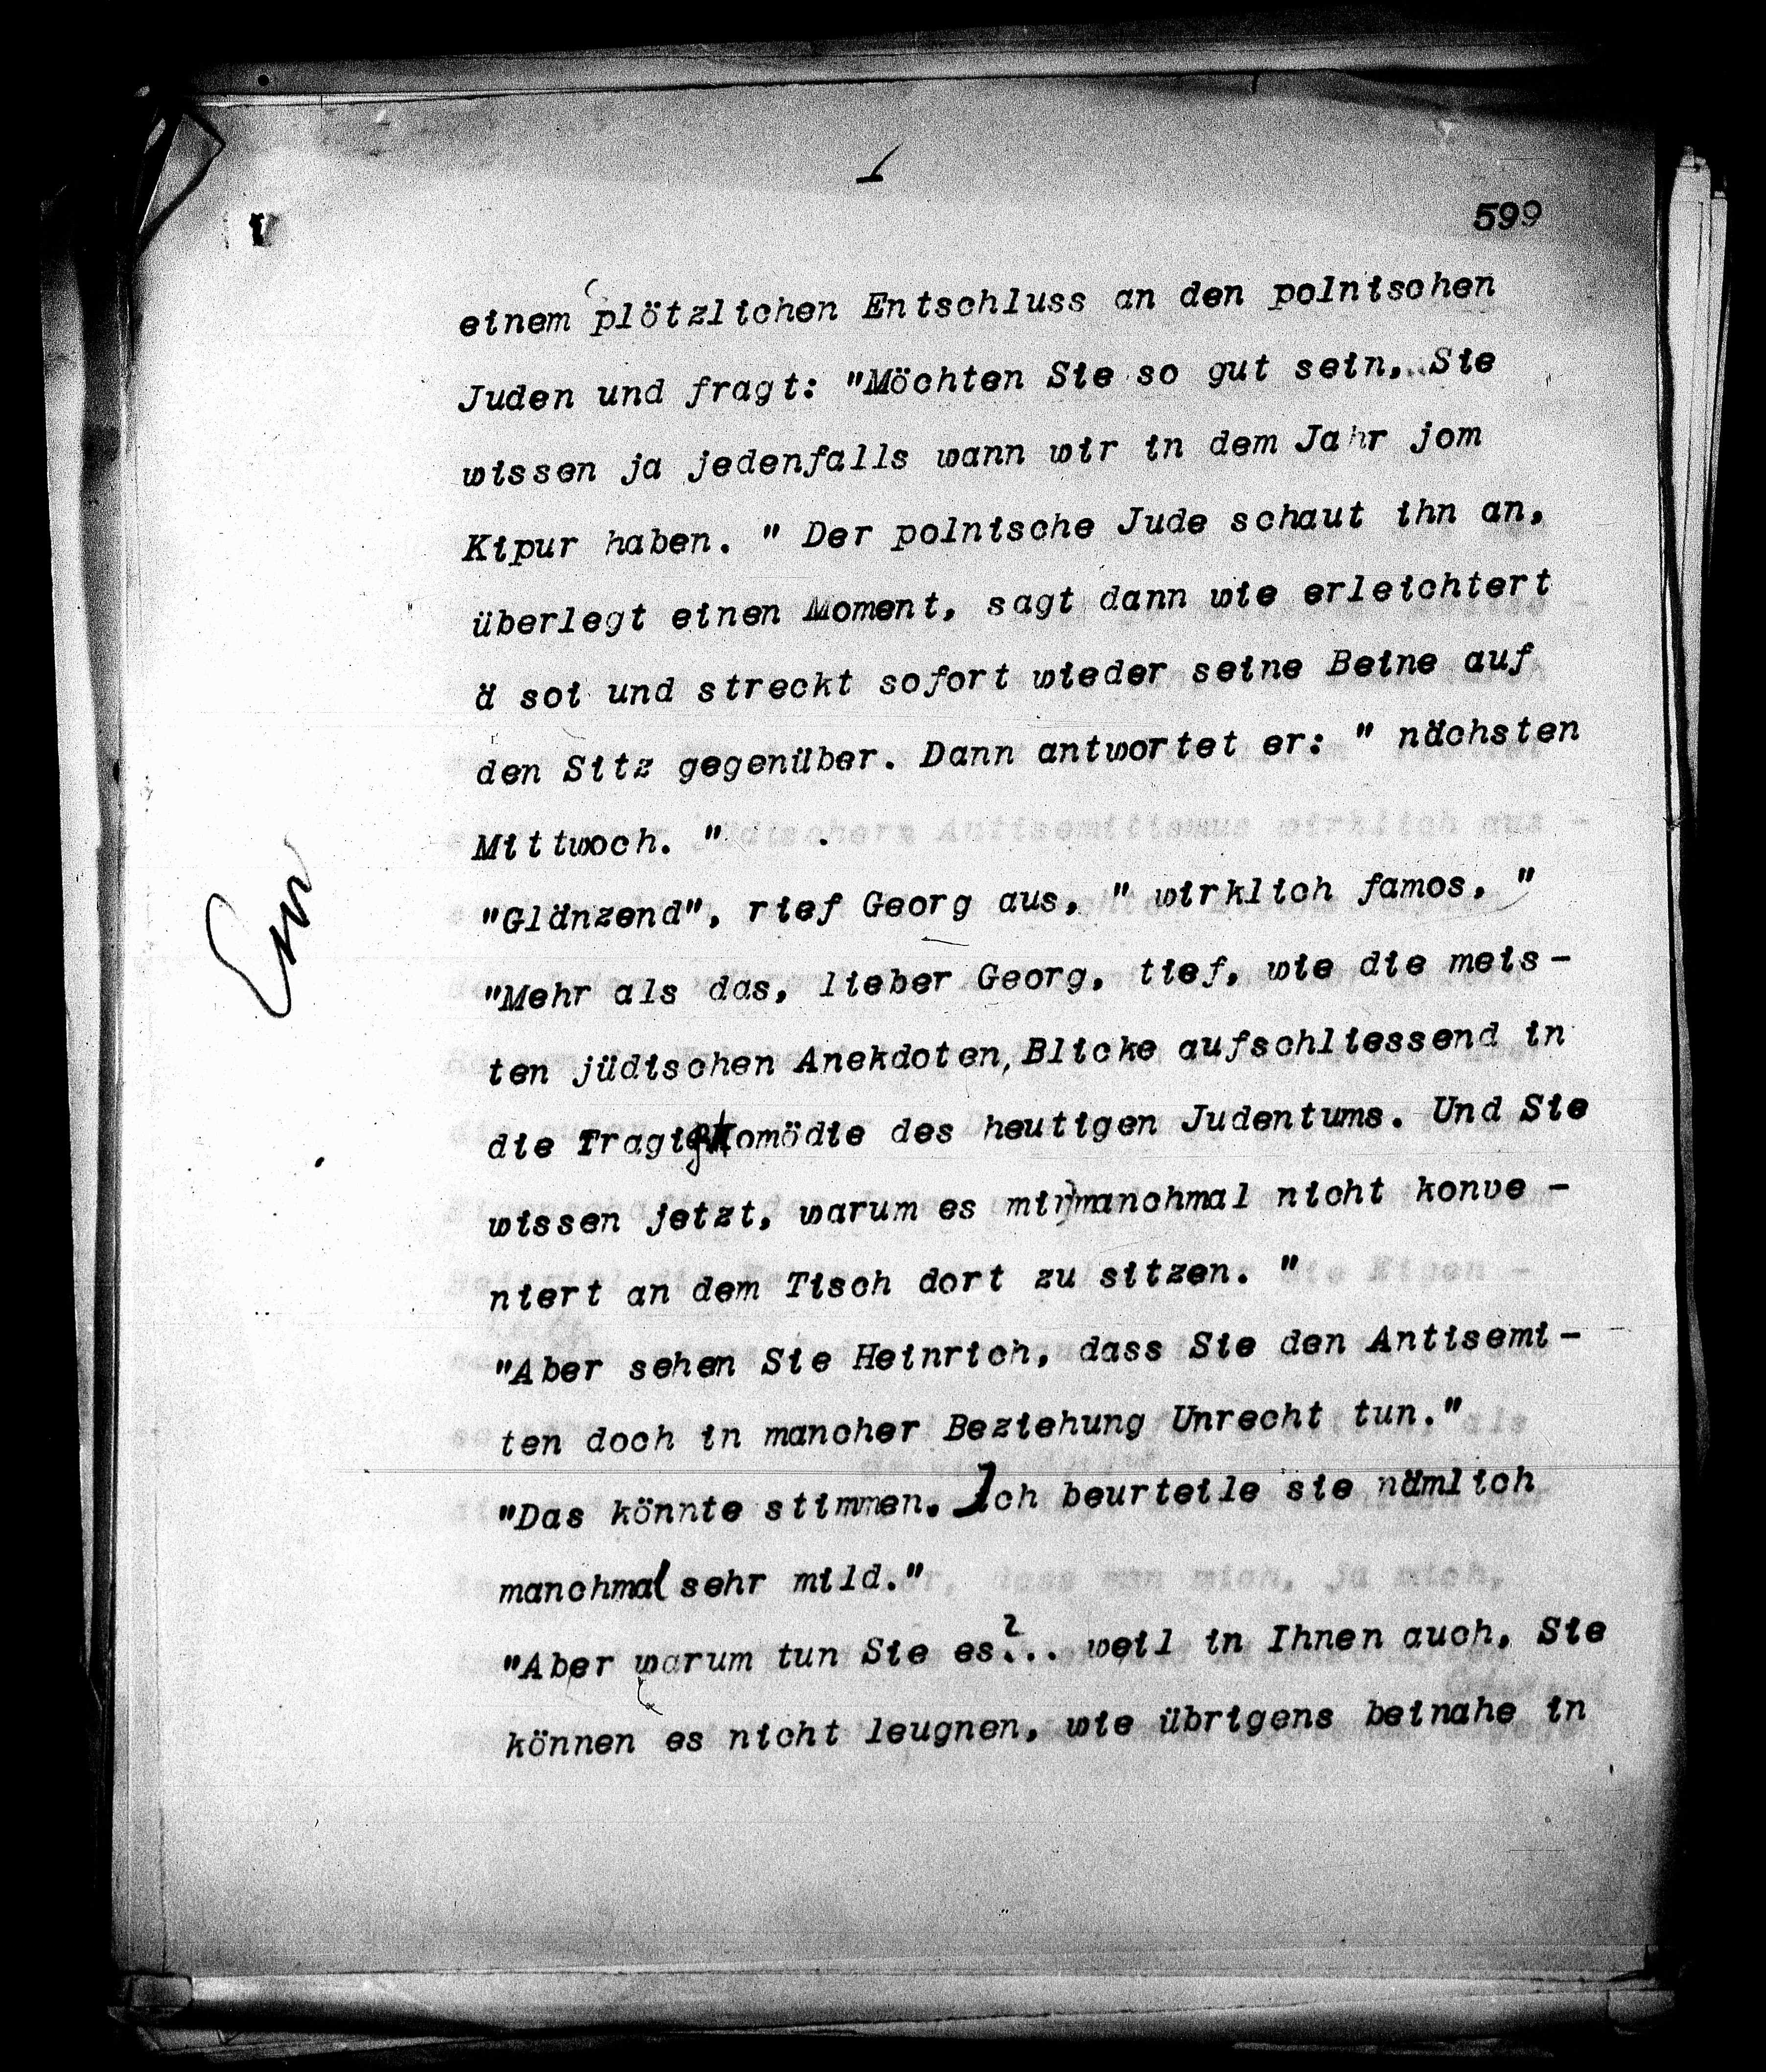 599
einem plötzlichen Entschluss an den polnischen
Juden und fragt: "Möchten Sie so gut sein, Sie
wissen ja jedenfalls wann wir in dem Jahr jom
Kipur haben. " Der polnische Jude schaut ihn an,
überlegt einen Moment, sagt dann wie erleichtert
ä soi und streckt sofort wieder seine Beine auf
den Sitz gegenüber. Dann antwortet er: " nächsten
Mittwoch. "
"Glänzend", rief Georg aus, " wirklich famos. "
"Mehr als das, lieber Georg, tief, wie die meis-
ten jüdischen Anekdoten, Blicke aufschliessend in
die Tragikomödie des heutigen Judentums. Und Sie
wissen jetzt, warum es mir manchmal nicht konve-
niert an dem Tisch dort zu sitzen. "
"Aber sehen Sie Heinrich, dass Sie den Antisemi-
ten doch in mancher Beziehung Unrecht tun."
"Das könnte stimmen. Ich beurteile sie nämlich
manchmal sehr mild."
"Aber warum tun Sie es?.. weil in Ihnen auch, Sie
können es nicht leugnen, wie übrigens beinahe in